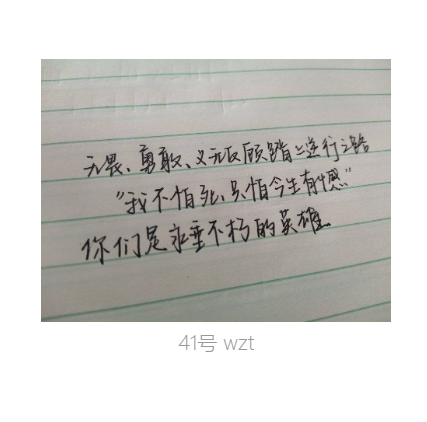 无畏、勇敢、义无反顾踏上逆行之路
“我不怕死，只怕今生有憾”
你们是永垂不朽的英雄
41号 wzt